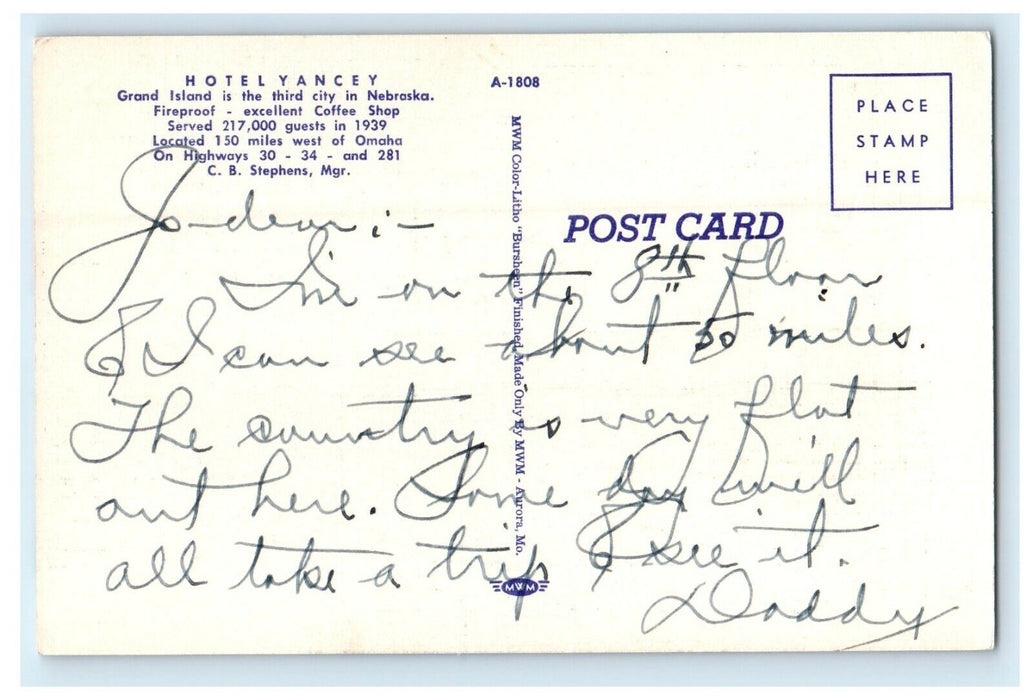 HOTEL YANCEY
Grand Island is the third city in Nebraska.
Fireproof - excellent Coffee Shop
Served 217,000 guests in 1939
Located 150 miles west of Omaha
On Highways 30 - 34 - and 281
C. B. Stephens, Mgr.
A-1808
MWM Color-Litho "Bursheen" Finished Made Only By MWM - Aurora, Mo.
MWM
POST CARD
PLACE
STAMP
HERE
Jo dear:-
I'm on the 8th floor
& I can see about 50 miles.
The country is very flat
out here. Some day we'll
all take a trip & see it.
Daddy